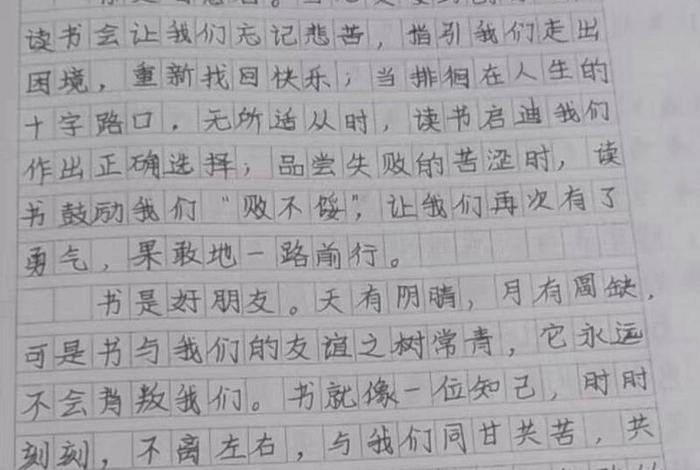 读书会让我们忘记悲苦，指引我们走出
困境，重新找回快乐；当排徊在人生的
十字路口，无所适从时，读书启迪我们
作出正确选择；品尝失败的苦涩时，读
书鼓励我们“败不馁”，让我们再次有了
勇气，果敢地一路前行。
书是好朋友。天有阴晴，月有圆缺，
可是书与我们的友谊之树常青，它永远
不会背叛我们。书就像一位知己，时时
刻刻，不离左右，与我们同甘共苦，共